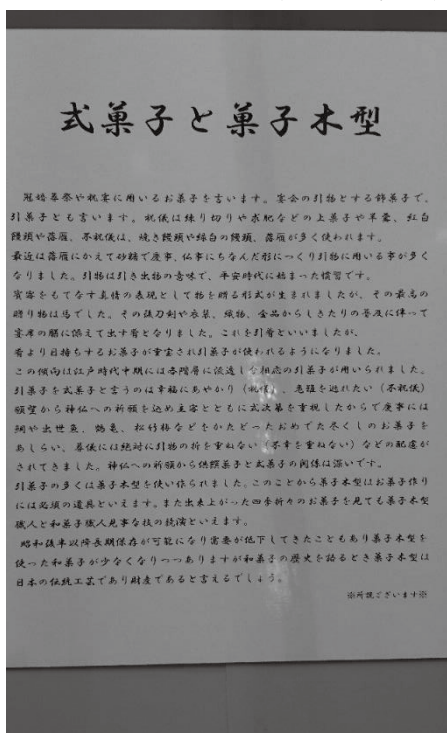 式菓子と菓子木型
冠婚葬祭や祝宴に用いるお菓子を言います。宴会の引物とする餝菓子で、
引菓子とも言います。祝儀は練り切りや求肥などの上菓子や羊羹、紅白
饅頭や落雁、不祝儀は、焼き饅頭や緑白の饅頭、落雁が多く使われます。
最近は落雁にかえて砂糖で慶事、仏事にちなんだ形につくり引物に用いる事が多く
なりました。引物は引き出物の意味で、平安時代に始まった慣習です。
賓客をもてなす真情の表現として物を贈る形式が生まれましたが、その最高の
贈り物は馬でした。その後刀剣や衣装、織物、金品からしきたりの普及に伴って
宴席の膳に添えて出す肴となりました。これを引肴といいましたが、
肴より日持ちするお菓子が重宝され引菓子が使われるようになりました。
この傾向は江戸時代中期には各階層に浸透し相応の引菓子が用いられました。
引菓子を式菓子と言うのは幸福にあやかり（祝儀）、悪難を逃れたい（不祝儀）
願望から神仏への祈願を込め主客とともに式次第を重視したからで慶事には
鯛や出世魚、鶴亀、松竹梅などをかたどったおめでた尽くしのお菓子を
あしらい、葬儀には絶対に引物の折を重ねない（不幸を重ねない）などの配慮が
されてきました。神仏への祈願から供饌菓子と式菓子の関係は深いです。
引菓子の多くは菓子木型を使い作られました。このことから菓子木型はお菓子作り
には必須の道具といえます。また出来上がった四季折々のお菓子を見ても菓子木型
職人と和菓子職人見事な技の競演といえます。
昭和後半以降長期保存が可能になり需要が低下してきたこともあり菓子木型を
使った和菓子が少なくなりつつありますが和菓子の歴史を語るとき菓子木型は
日本の伝統工芸であり財産であると言えるでしょう。
※所説ございます※